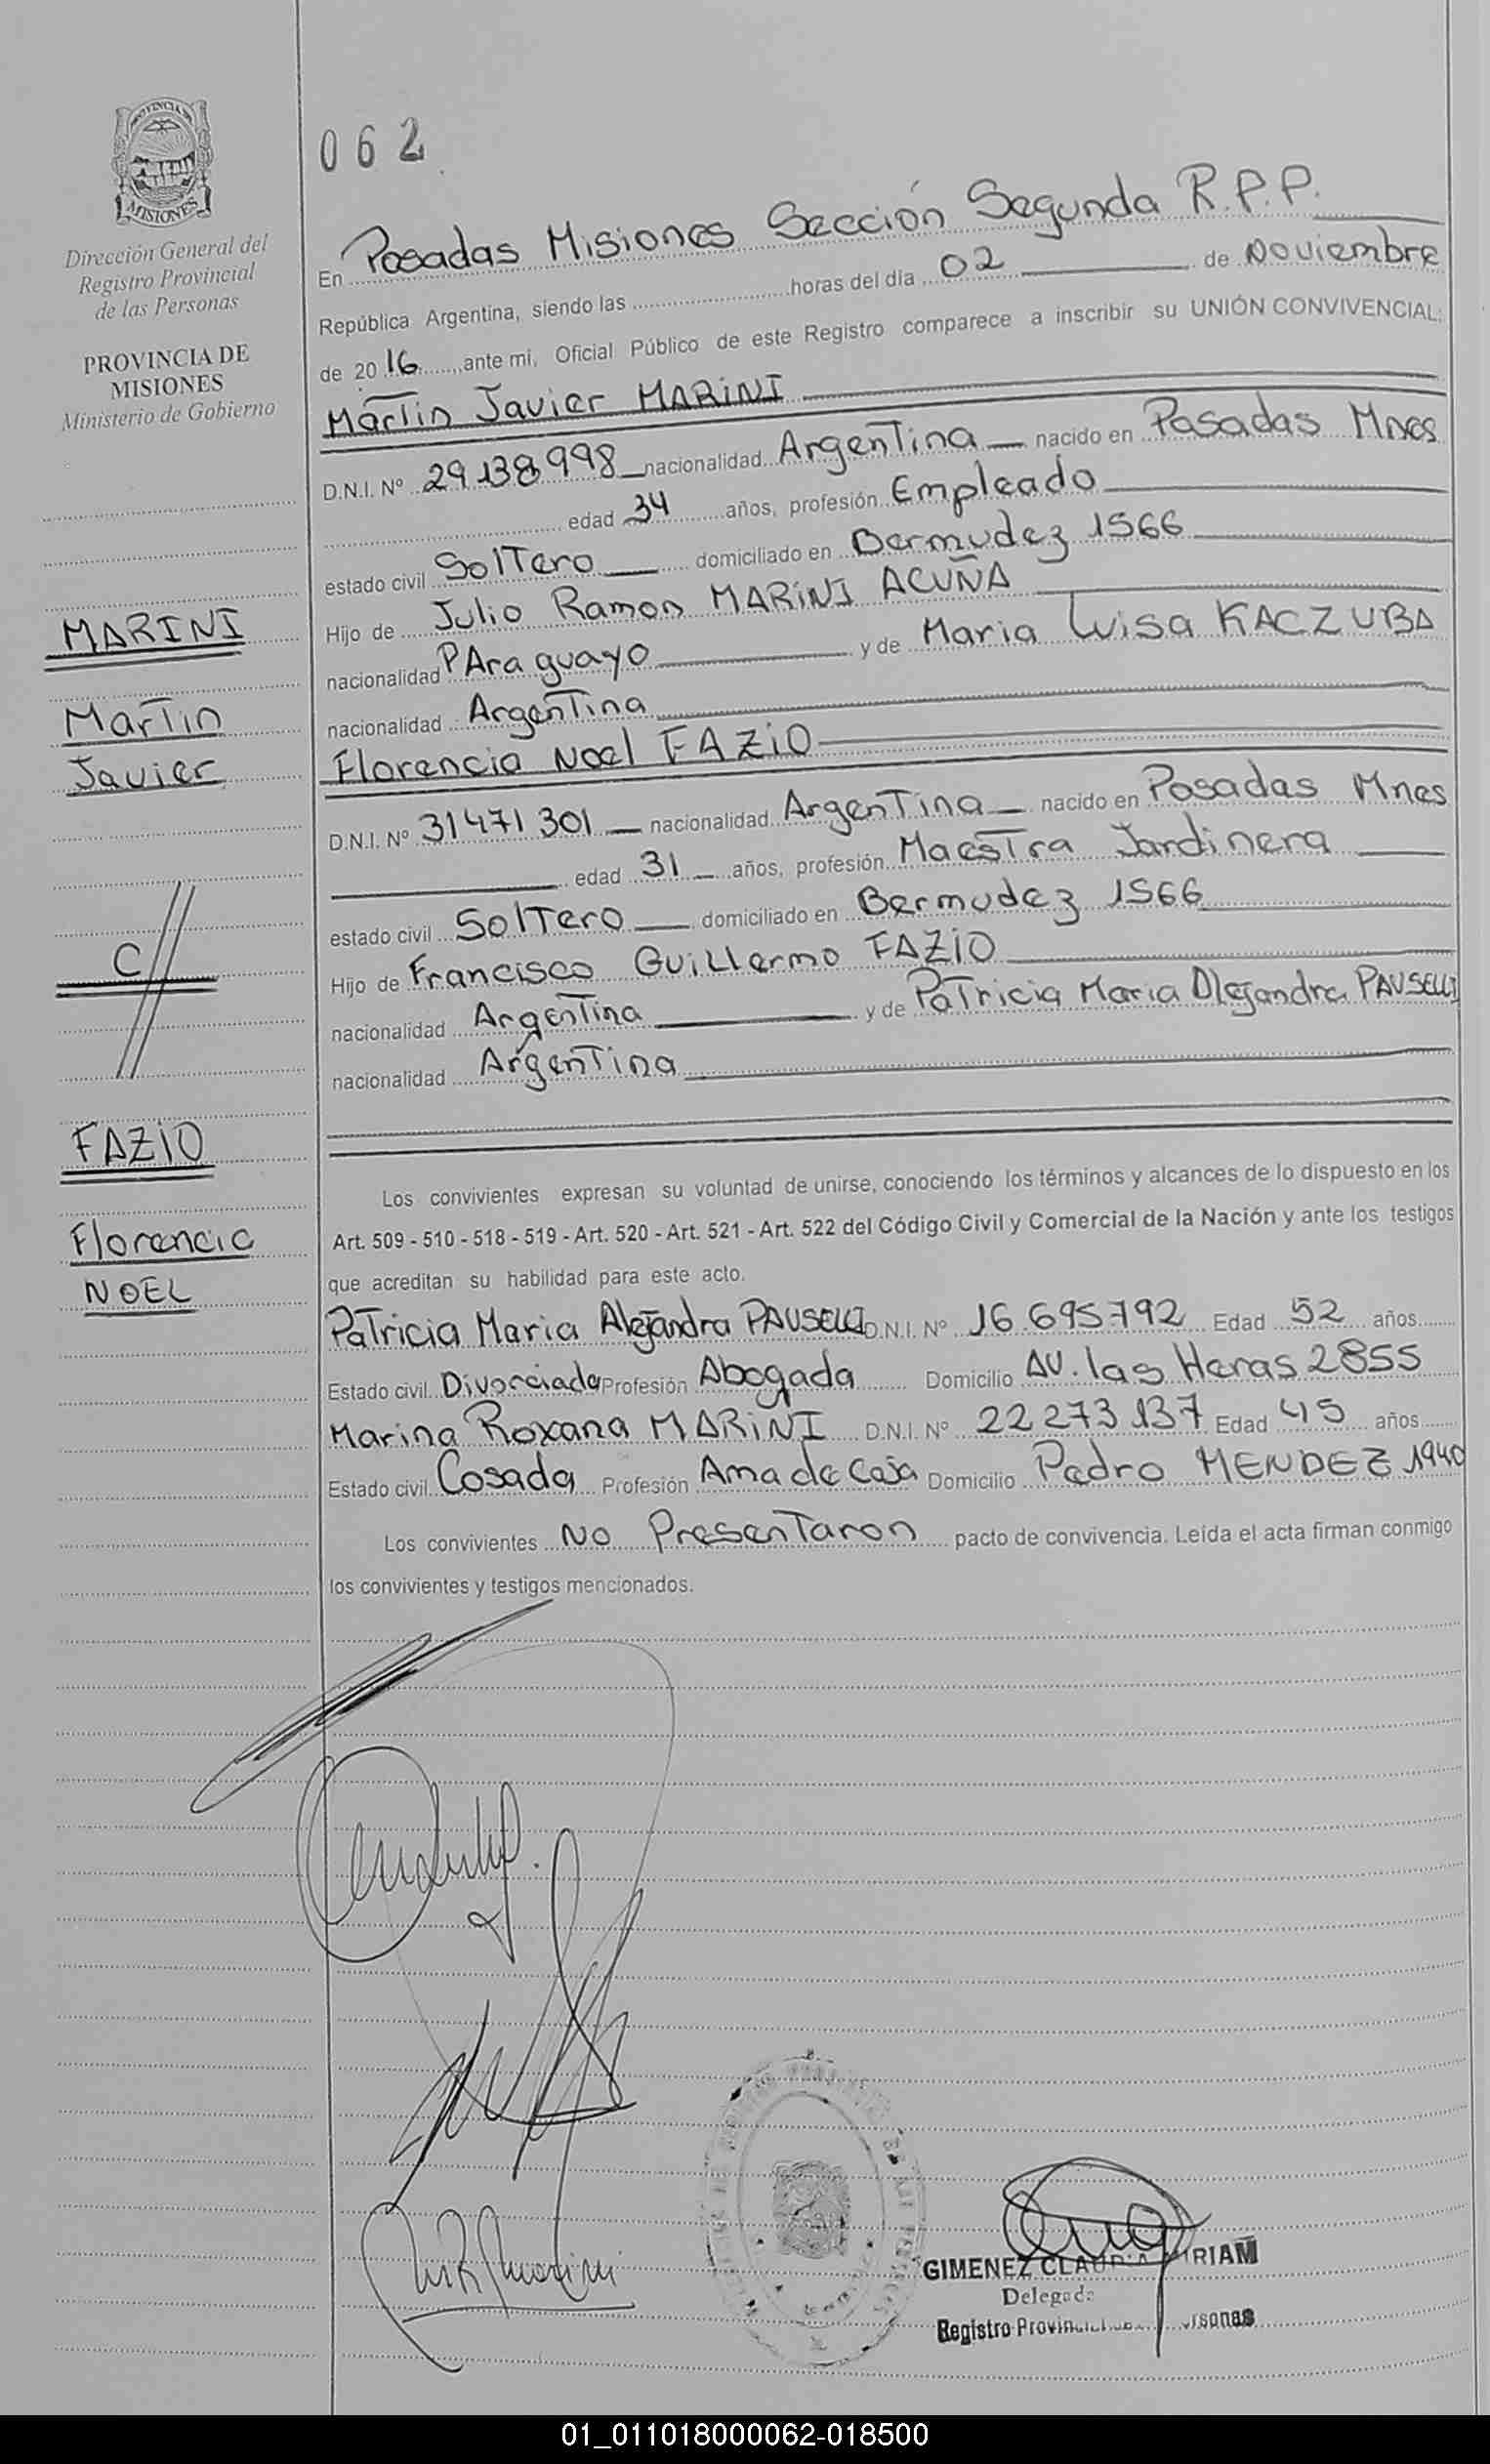 PROVINCIA
MISIONES
Dirección General del
Registro Provincial
de las Personas
PROVINCIA DE
MISIONES
Ministerio de Gobierno
MARINI
Martin
Javier
C//
FAZIO
Florencia
NOEL
062
En Posadas Misiones Sección Segunda R.P.P.
República Argentina, siendo las ........ horas del día 02 de Noviembre
de 2016, ante mi, Oficial Público de este Registro comparece a inscribir su UNIÓN CONVIVENCIAL:
Martin Javier MARINI
D.N.I. Nº 29.138.998 nacionalidad Argentina nacido en Posadas Mnes
edad 34 años, profesión Empleado
estado civil Soltero domiciliado en Bermudez 1566
Hijo de Julio Ramon MARINI ACUÑA
nacionalidad PAraguayo y de Maria Luisa KACZUBA
nacionalidad Argentina
Florencia Noel FAZIO
D.N.I. Nº 31471301 nacionalidad Argentina nacido en Posadas Mnes
edad 31 años, profesión Maestra Jardinera
estado civil Soltero domiciliado en Bermudez 1566
Hijo de Francisco Guillermo FAZIO
nacionalidad Argentina y de Patricia Maria Alejandra PAUSELLI
nacionalidad Argentina
Los convivientes expresan su voluntad de unirse, conociendo los términos y alcances de lo dispuesto en los
Art. 509 - 510 - 518 - 519 - Art. 520 - Art. 521 - Art. 522 del Código Civil y Comercial de la Nación y ante los testigos
que acreditan su habilidad para este acto.
Patricia Maria Alejandra PAUSELLI D.N.I. Nº 16.695.792 Edad 52 años
Estado civil Divorciada Profesión Abogada Domicilio AV. las Heras 2855
Marina Roxana MARINI D.N.I. Nº 22 273 137 Edad 45 años
Estado civil Casada Profesión Ama de Casa Domicilio Pedro MENDEZ 1940
Los convivientes NO Presentaron pacto de convivencia. Leída el acta firman conmigo
los convivientes y testigos mencionados.
GIMENEZ CLAUDIA MIRIAM
Delegada
Registro Provincial de las Personas
01_011018000062-018500